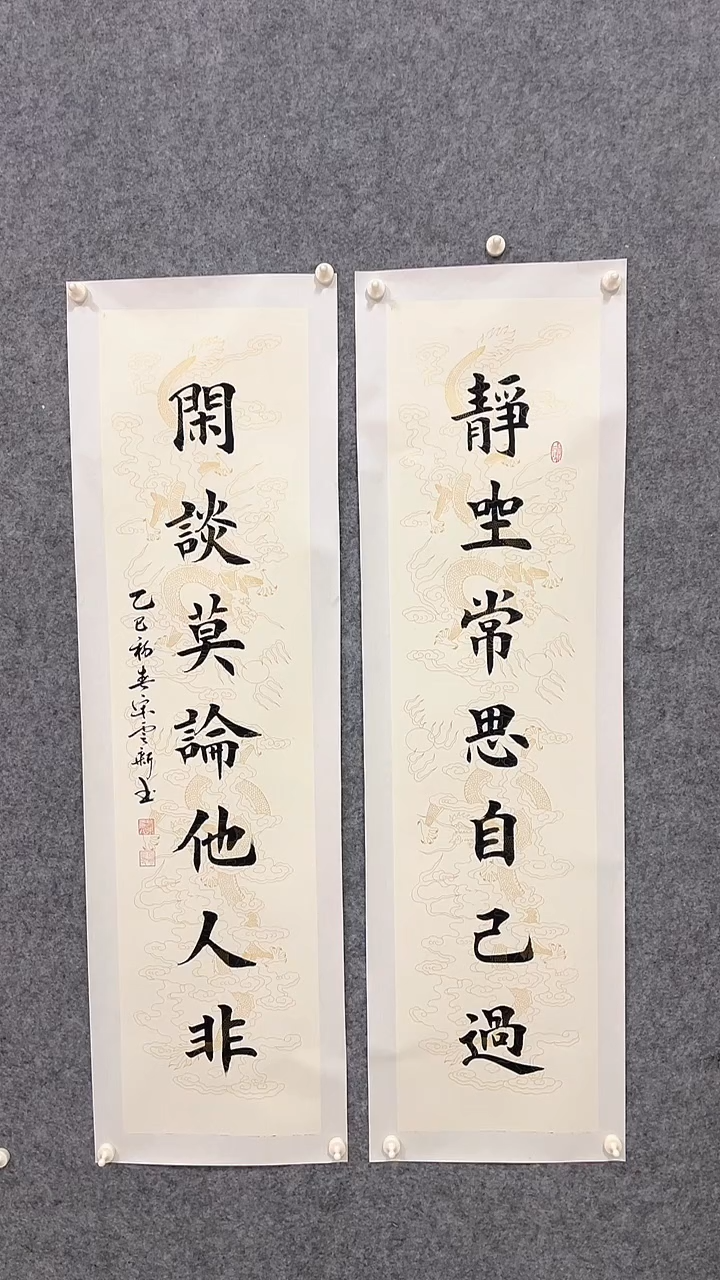 靜坐常思自己過
閑談莫論他人非
乙巳初春宋雲新書